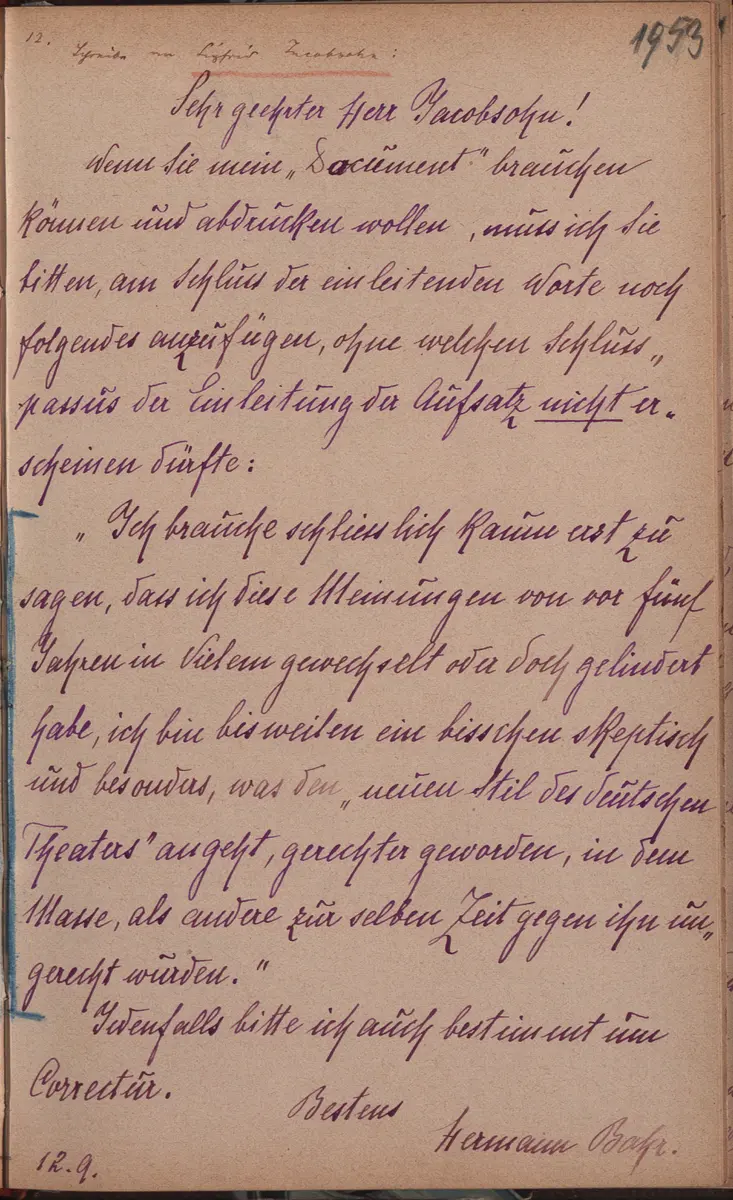 1953
12.
Schreibe an Sigfrid Jacobsohn:
Sehr geehrter Herr Jacobsohn!
Wenn Sie mein „Document" brauchen
können und abdrucken wollen, muss ich Sie
bitten, am Schluss der einleitenden Worte noch
folgendes anzufügen, ohne welchen Schluss„
passus der Einleitung der Aufsatz nicht er„
scheinen dürfte:
„Ich brauche schliesslich kaum erst zu
sagen, dass ich diese Meinungen von vor fünf
Jahren in Vielem gewechselt oder doch gelindert
habe, ich bin bisweilen ein bisschen skeptisch
und besonders, was den „neuen Stil des deutschen
Theaters" angeht, gerechter geworden, in dem
Masse, als andere zur selben Zeit gegen ihn un„
gerecht wurden."
Jedenfalls bitte ich auch bestimmt um
Correctur.
Bestens
Hermann Bahr.
12.9.